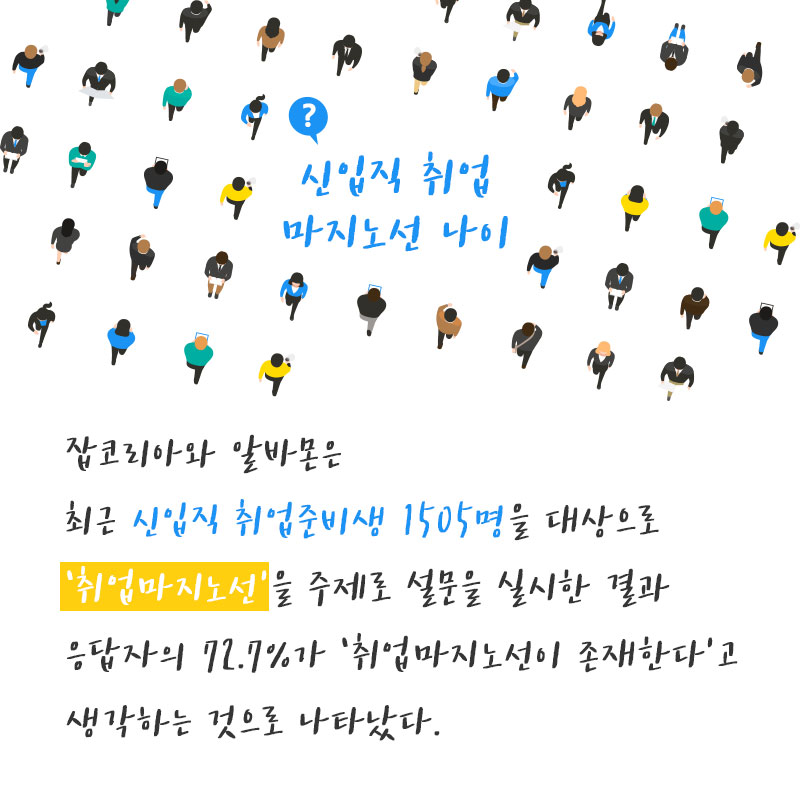 ?
신입직 취업
마지노선 나이
잡코리아와 알바몬은
최근 신입직 취업준비생 1505명을 대상으로
'취업마지노선'을 주제로 설문을 실시한 결과
응답자의 72.7%가 '취업마지노선이 존재한다'고
생각하는 것으로 나타났다.